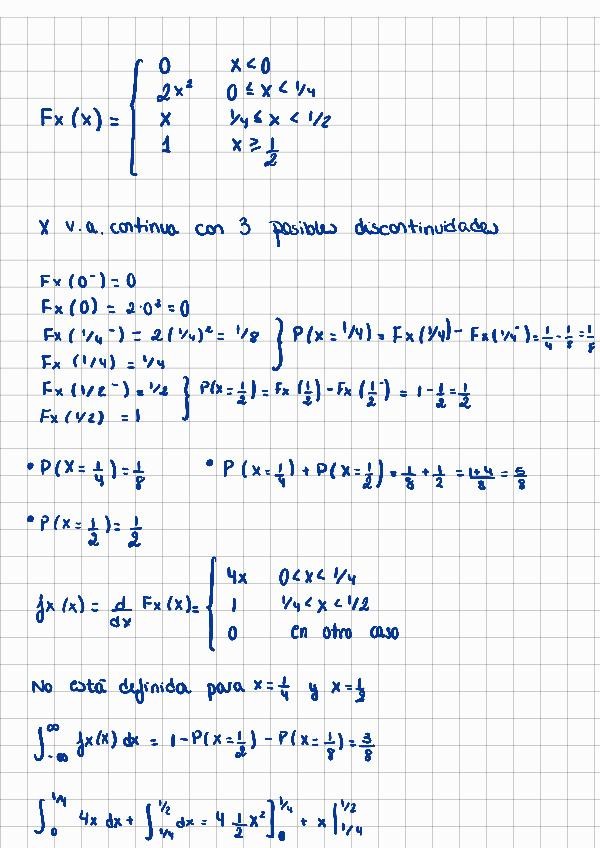 Fx(x) = { 0 x < 0
2x² 0 ≤ x < 1/4
x 1/4 ≤ x < 1/2
1 x ≥ 1/2
X v.a. continua con 3 posibles discontinuidades
Fx(0⁻) = 0
Fx(0) = 2·0² = 0
Fx(1/4⁻) = 2(1/4)² = 1/8 } P(X = 1/4) = Fx(1/4) - Fx(1/4⁻) = 1/4 - 1/8 = 1/8
Fx(1/4) = 1/4
Fx(1/2⁻) = 1/2 } P(X = 1/2) = Fx(1/2) - Fx(1/2⁻) = 1 - 1/2 = 1/2
Fx(1/2) = 1
• P(X = 1/4) = 1/8 • P(X = 1/4) + P(X = 1/2) = 1/8 + 1/2 = 1+4/8 = 5/8
• P(X = 1/2) = 1/2
fx(x) = d/dx Fx(x) = { 4x 0 < x < 1/4
1 1/4 < x < 1/2
0 en otro caso
No está definida para x = 1/4 y x = 1/2
∫_{-∞}^{∞} fx(x) dx = 1 - P(X = 1/2) - P(X = 1/8) = 3/8
∫_0^{1/4} 4x dx + ∫_{1/4}^{1/2} dx = 4 1/2 x² ]_0^{1/4} + x |_{1/4}^{1/2}